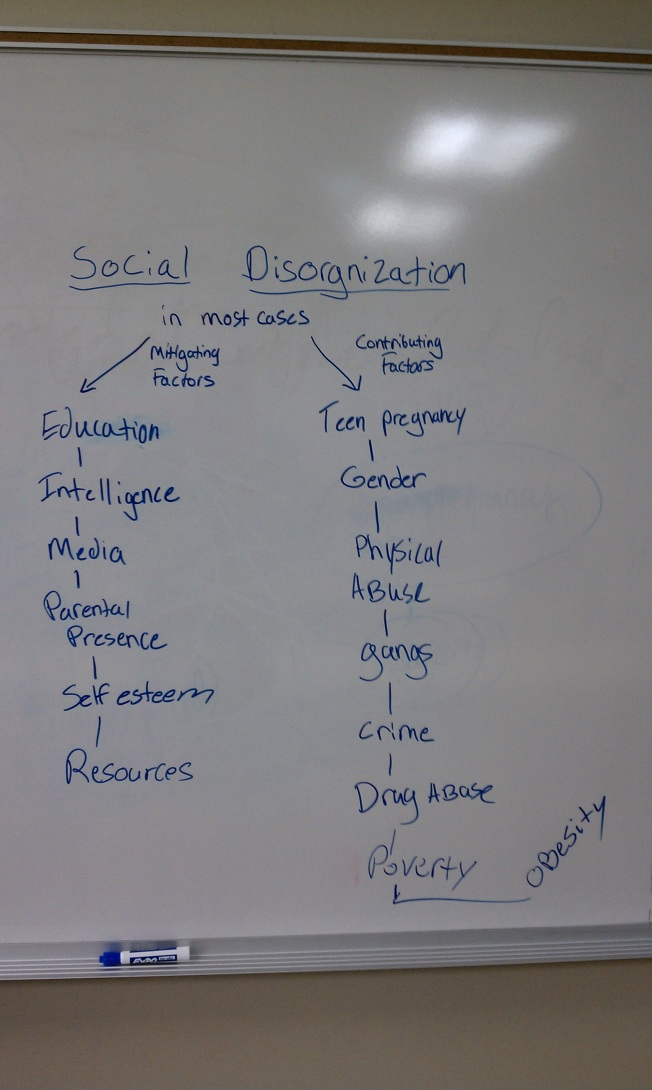 Social Disorgnization
in most cases
Mitigating
Factors
Education
Intelligence
Media
Parental
Presence
Self esteem
Resources
Contributing
Factors
Teen pregnancy
Gender
Physical
ABuse
gangs
Crime
Drug ABuse
Poverty
OBesity
EXPO